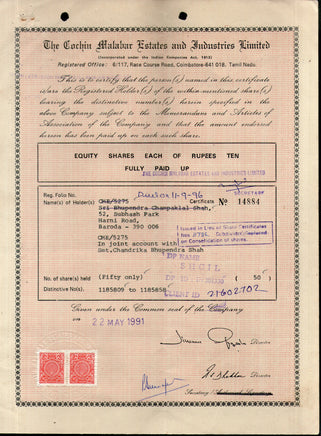 The Cochin Malabar Estates and Industries Limited
(Incorporated under the Indian Companies Act, 1913)
Registered Office: 6/117, Race Course Road, Coimbatore-641 018. Tamil Nadu.
This is to certify that the person(s) named in this certificate
is/are the Registered Holder(s) of the within-mentioned share(s)
bearing the distinctive number(s) herein specified in the
above Company subject to the Memorandum and Articles of
Association of the Company and that the amount endorsed
hereon has been paid up on each such share.
EQUITY SHARES EACH OF RUPEES TEN
FULLY PAID UP
THE COCHIN MALABAR ESTATES AND INDUSTRIES LIMITED
SECRETARY
Reg. Folio No. CMR/5275
11-9-96
Certificate No 14884
Name(s) of Holder(s) Sri Bhupendra Champaklal Shah,
52, Subhash Park
Harni Road,
Baroda - 390 006
CMR/5275
In joint account with
Smt.Chandrika Bhupendra Shah
Issued in Lieu of Share Certificates
Nos
on Consolidation of shares.
DP NAME
SHCIL
DP ID
CLIENT ID 21602702
No. of share(s) held (Fifty only) ( 50 )
Distinctive No(s). 1185809 to 1185858
Given under the Common seal of the Company
on 22 MAY 1991
Director
Director
Secretary